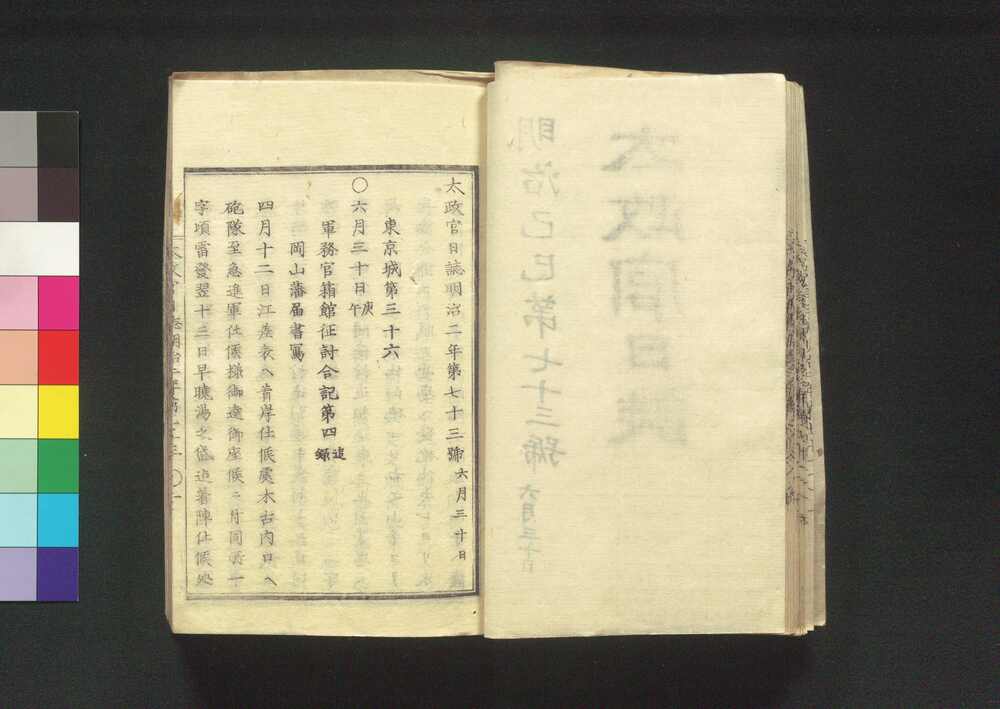 太政官日誌明治己巳第七十三號 六月三十日
太政官日誌明治二年第七十三號 六月三十日
東京城第三十六
○六月三十日 庚午
軍務官箱館征討合記第四 追錄
岡山藩届書寫
四月十二日江差表ヘ着岸仕候處木古内口ヘ
砲隊至急進軍仕候樣御達御座候ニ付同夜一
字頃雷發翌十三日早曉湯之岱追著陣仕候処